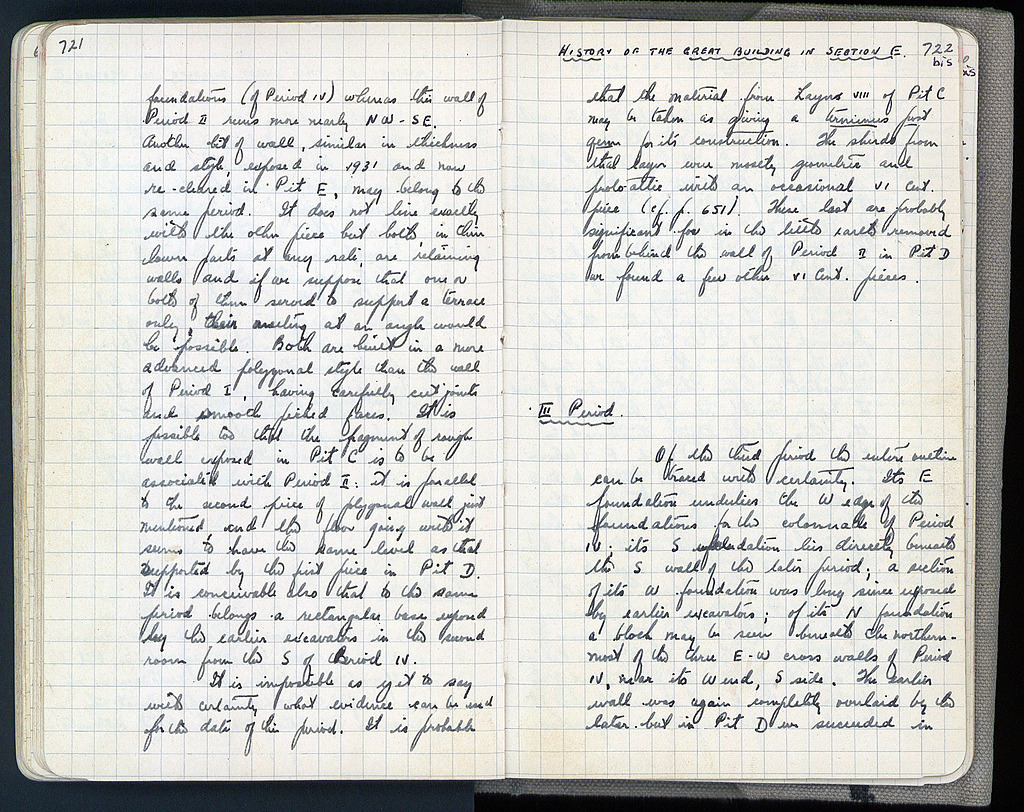 721
foundations (of Period IV) whereas this wall of
Period II runs more nearly NW-SE.
Another bit of wall, similar in thickness
and style, exposed in 1931 and now
re-cleared in Pit E, may belong to the
same period. It does not line exactly
with the other piece but both, in their
lower parts at any rate, are retaining
walls and if we suppose that one or
both of them served to support a terrace
only, their meeting at an angle would
be possible. Both are built in a more
advanced polygonal style than the wall
of Period I, having carefully cut joints
and smooth picked faces. It is
possible too that the fragment of rough
wall exposed in Pit C is to be
associated with Period II: it is parallel
to the second piece of polygonal wall just
mentioned and the floor going with it
seems to have the same level as that
supported by the first piece in Pit D.
It is conceivable also that to the same
period belongs a rectangular base exposed
by the earlier excavators in the second
room from the S of Period IV.
It is impossible as yet to say
with certainty what evidence can be used
for the date of this period. It is probable
HISTORY OF THE GREAT BUILDING IN SECTION E. 722
bis
that the material from Layer VIII of Pit C
may be taken as giving a terminus post
quem for its construction. The sherds from
that layer were mostly geometric and
proto-attic with an occasional VI cent.
piece (cf. p. 651). These last are probably
significant for in the little earth removed
from behind the wall of Period II in Pit D
we found a few other VI cent. pieces.
III Period.
Of the third period the entire outline
can be traced with certainty. Its E
foundation underlies the W edge of the
foundations for the colonnade of Period
IV; its S foundation lies directly beneath
the S wall of the later period; a section
of its W foundation was long since exposed
by earlier excavators; of its N foundation
a block may be seen beneath the northern-
most of the three E-W cross walls of Period
IV, near its W end, S side. The earlier
wall was again completely overlaid by the
later but in Pit D we succeeded in